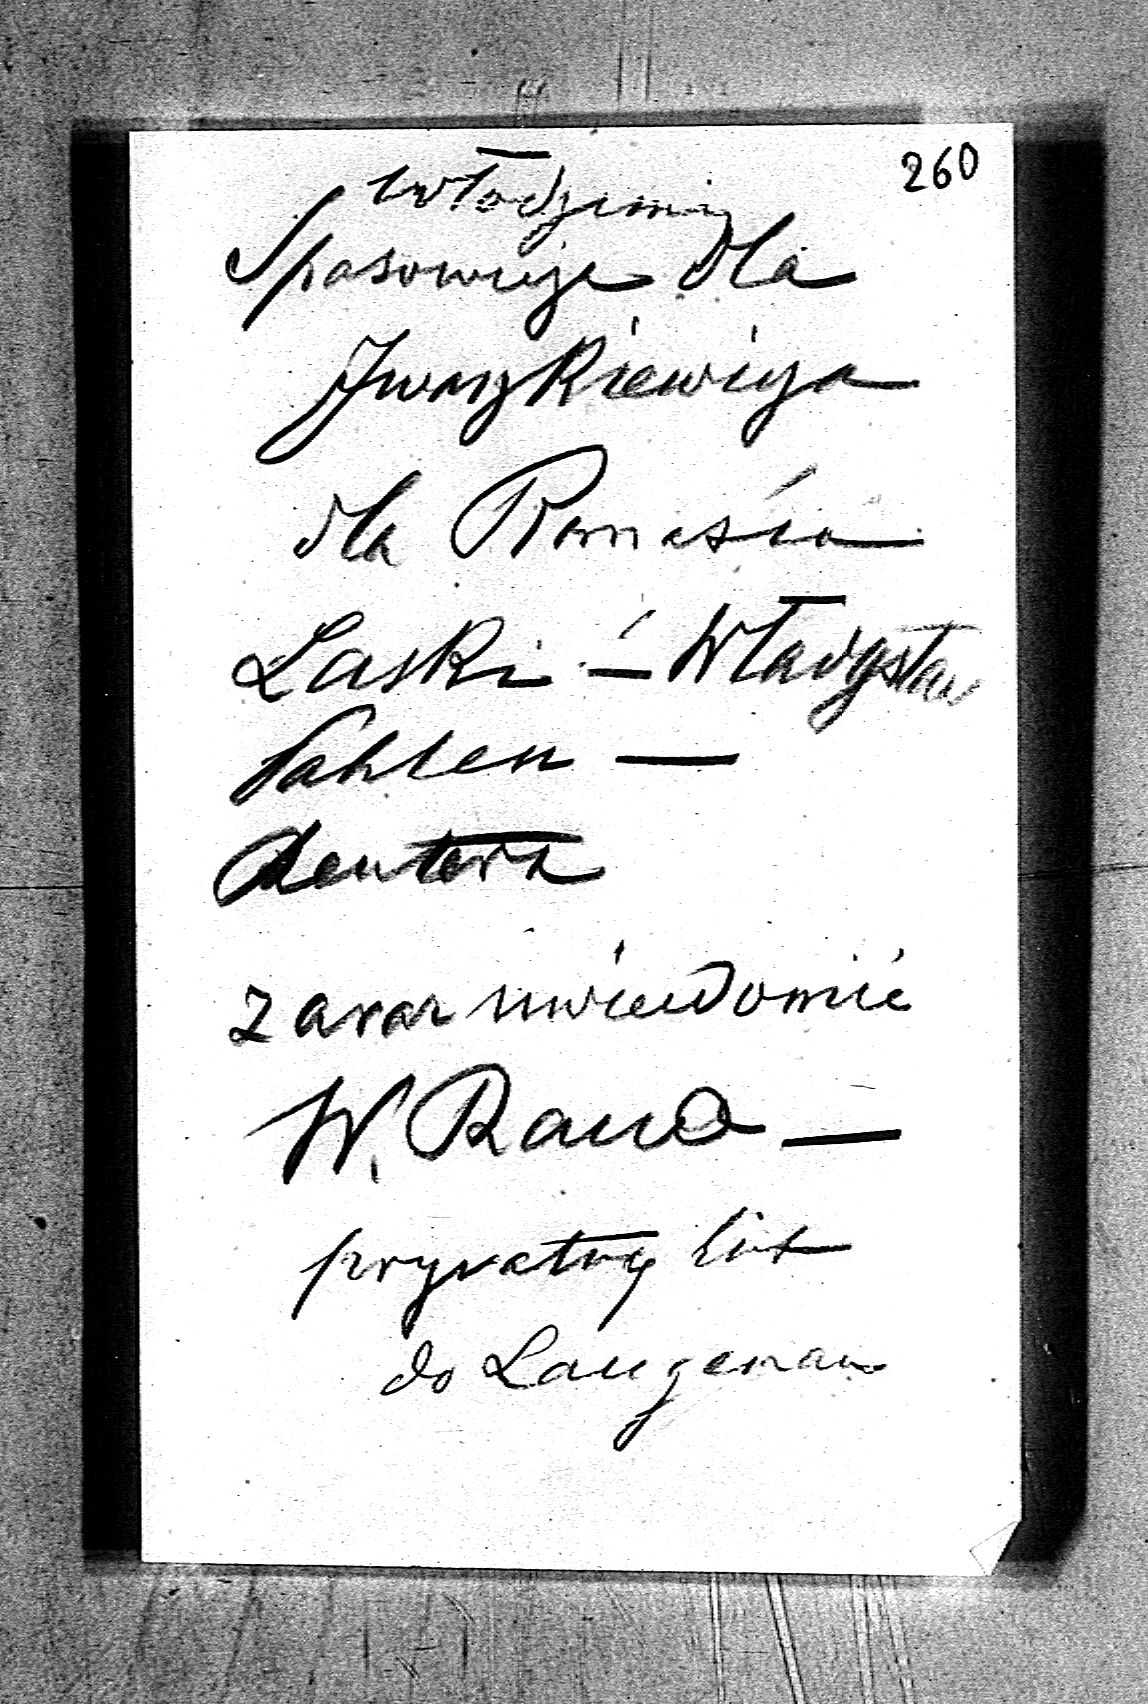 260
Włodzimierz
Spasowicza dla
Iwaszkiewicza
dla Ramasia
Laski — Władysław
Pahlen —
Reutern
zaraz uwiedomić
W. Rand —
prywatny list
do Langenau